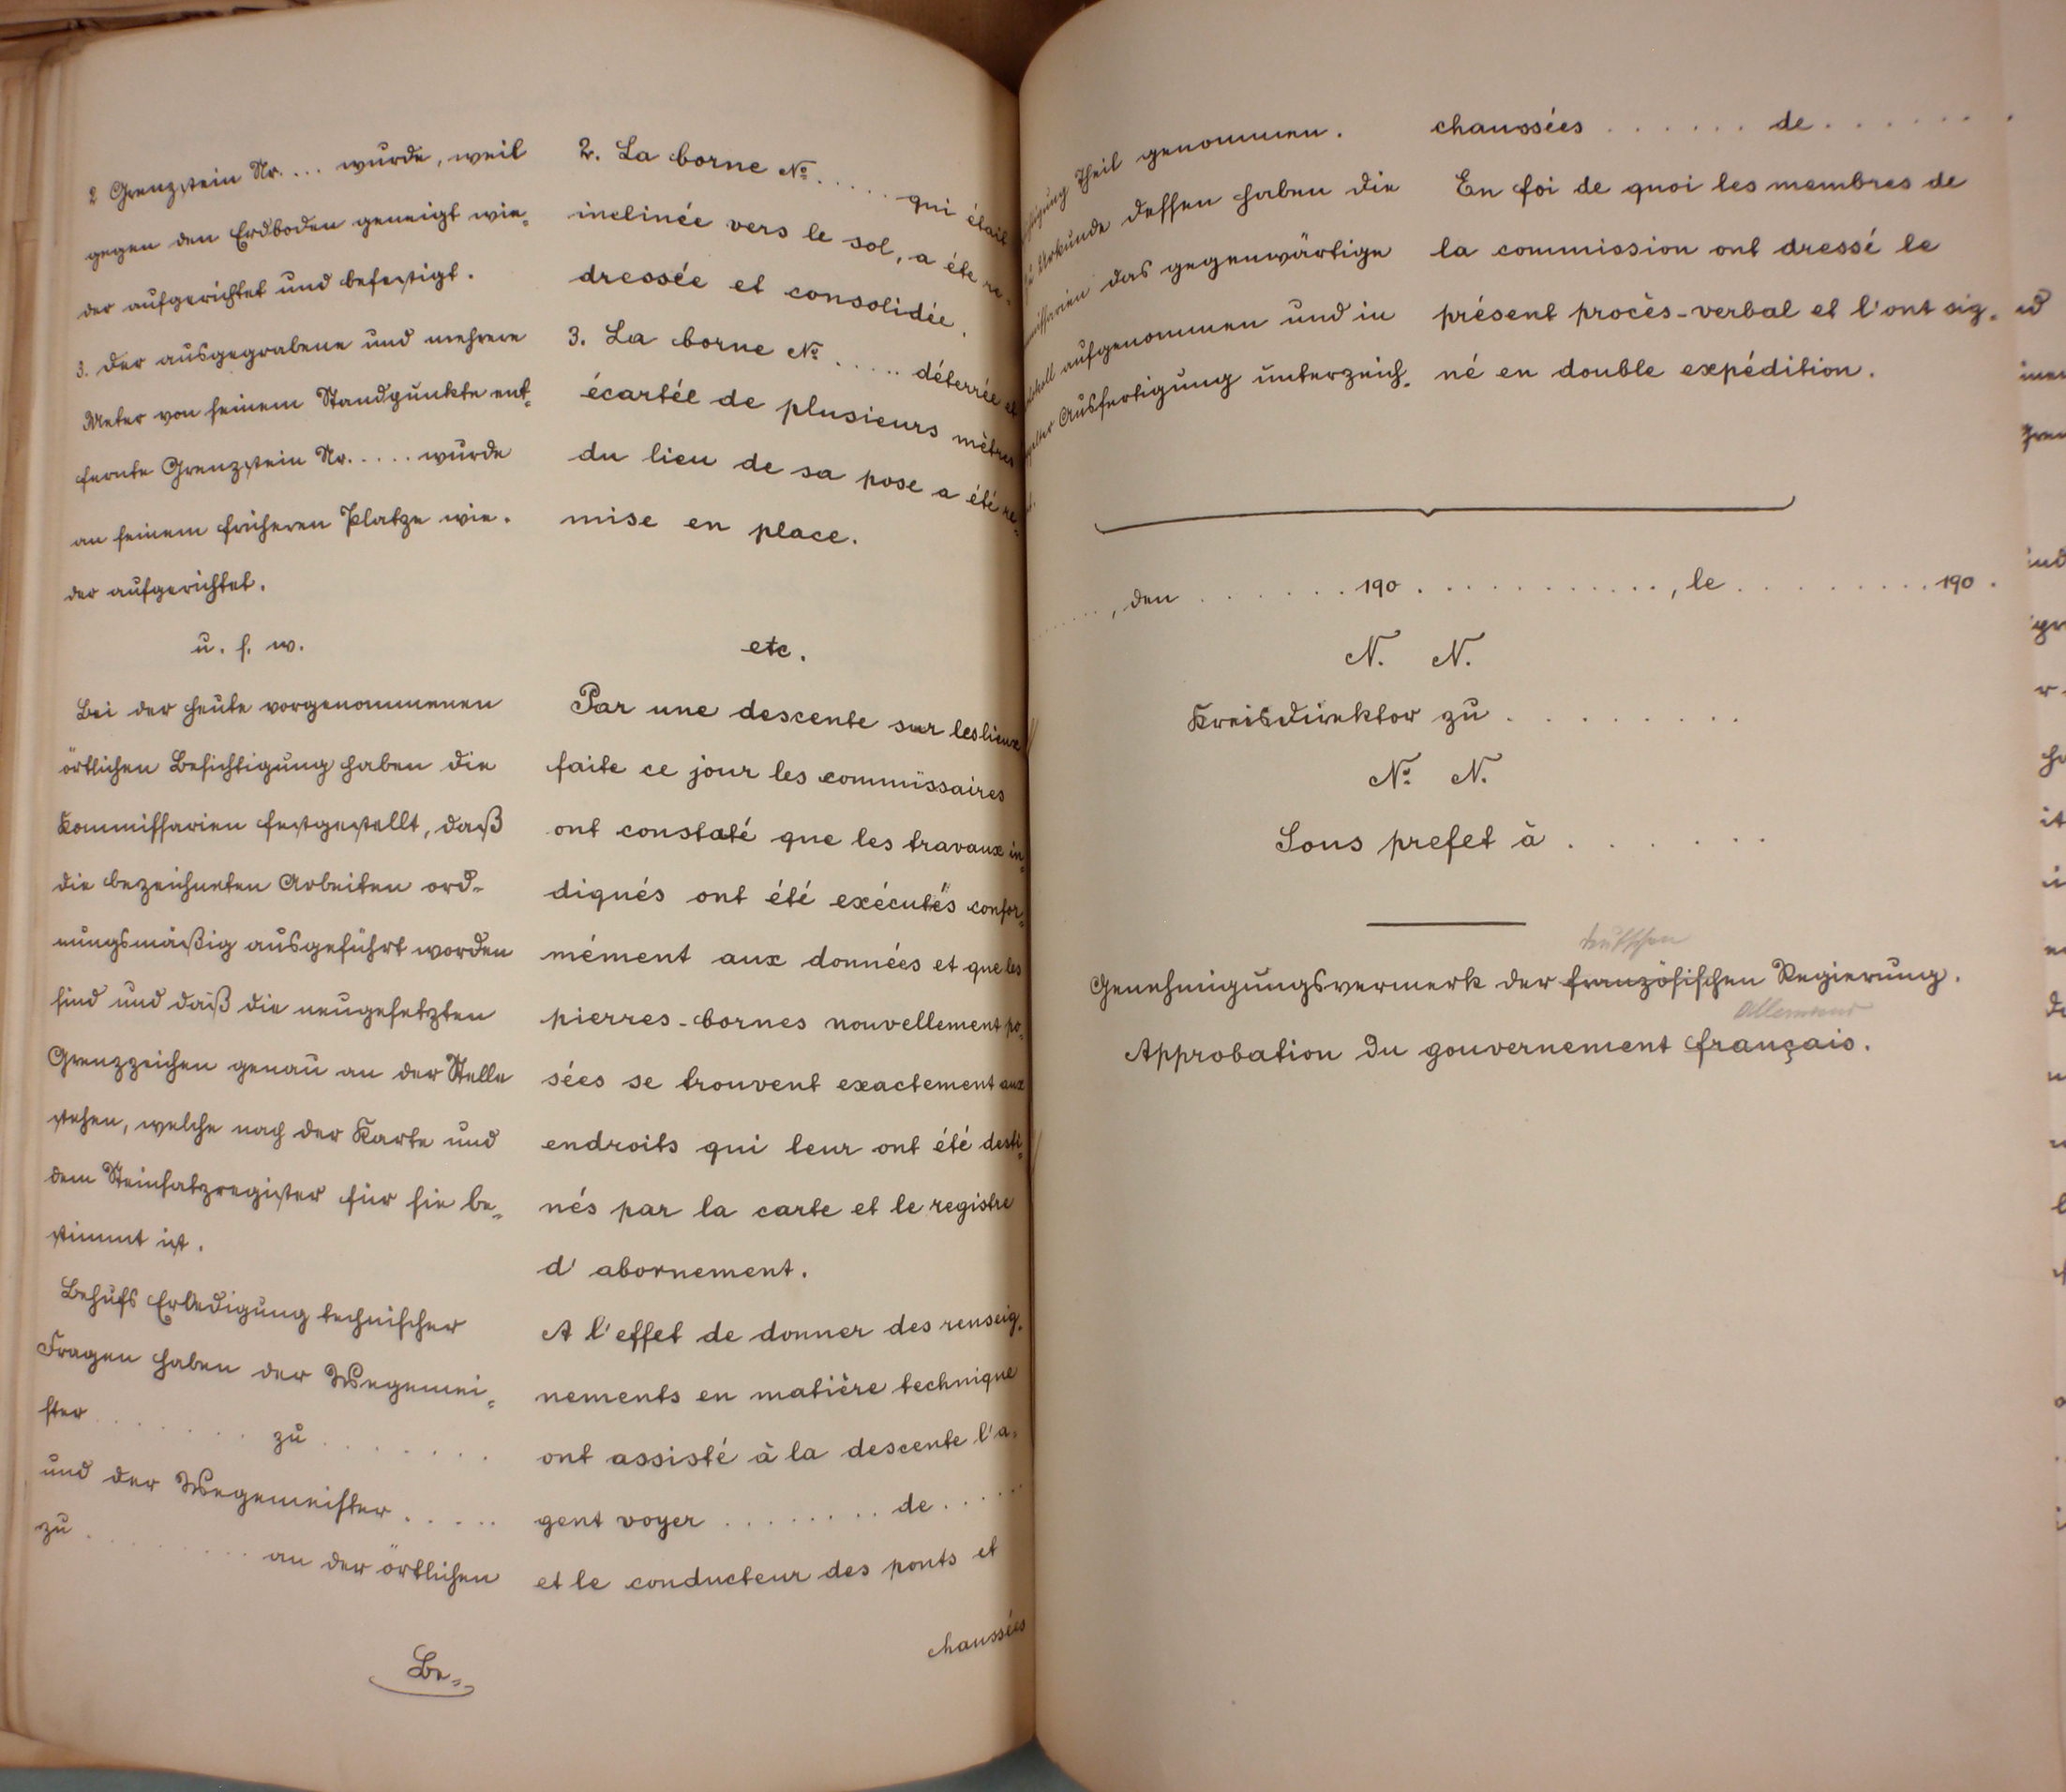 2 Grenzstein Nr. ... wurde, weil
gegen den Erdboden geneigt wie=
der aufgerichtet und befestigt.
3. der ausgegrabene und mehrere
Meter von seinem Standpunkte ent=
fernte Grenzstein Nr. .... wurde
an seinem früheren Platze wie=
der aufgerichtet.
u. s. w.
Bei der heute vorgenommenen
örtlichen Besichtigung haben die
Kommissarien festgestellt, daß
die bezeichneten Arbeiten ord=
nungsmäßig ausgeführt worden
sind und daß die neugesetzten
Grenzzeichen genau an der Stelle
stehen, welche nach der Karte und
dem Steinsatzregister für sie be=
stimmt ist.
Behufs Erledigung technischer
Fragen haben der Wegemei=
ster ....... zu .......
und der Wegemeister .....
zu ........ an der örtlichen
Be=
2. La borne No. ..... qui était
inclinée vers le sol, a été re=
dressée et consolidée.
3. La borne No. ..... déterrée et
écartée de plusieurs mètres
du lieu de sa pose a été re=
mise en place.
etc.
Par une descente sur les lieux
faite ce jour les commissaires
ont constaté que les travaux in=
diqués ont été exécutés confor=
mément aux données et que les
pierres-bornes nouvellement po=
sées se trouvent exactement aux
endroits qui leur ont été desti=
nés par la carte et le registre
d'abornement.
A l'effet de donner des renseig=
nements en matière technique
ont assisté à la descente l'a=
gent voyer ........ de .....
et le conducteur des ponts et
chaussées
Theil genommen.
Urkunde dessen haben die
das gegenwärtige
aufgenommen und in
Ausfertigung unterzeich=
chaussées ...... de .......
En foi de quoi les membres de
la commission ont dressé le
présent procès-verbal et l'ont sig=
né en double expédition.
....., den ....... 190 ..........., le ......... 190.
N. N.
Kreisdirektor zu ........
No. N.
Sous prefet à ......
deutschen
Genehmigungsvermerk der französischen Regierung.
Allemand
Approbation du gouvernement français.